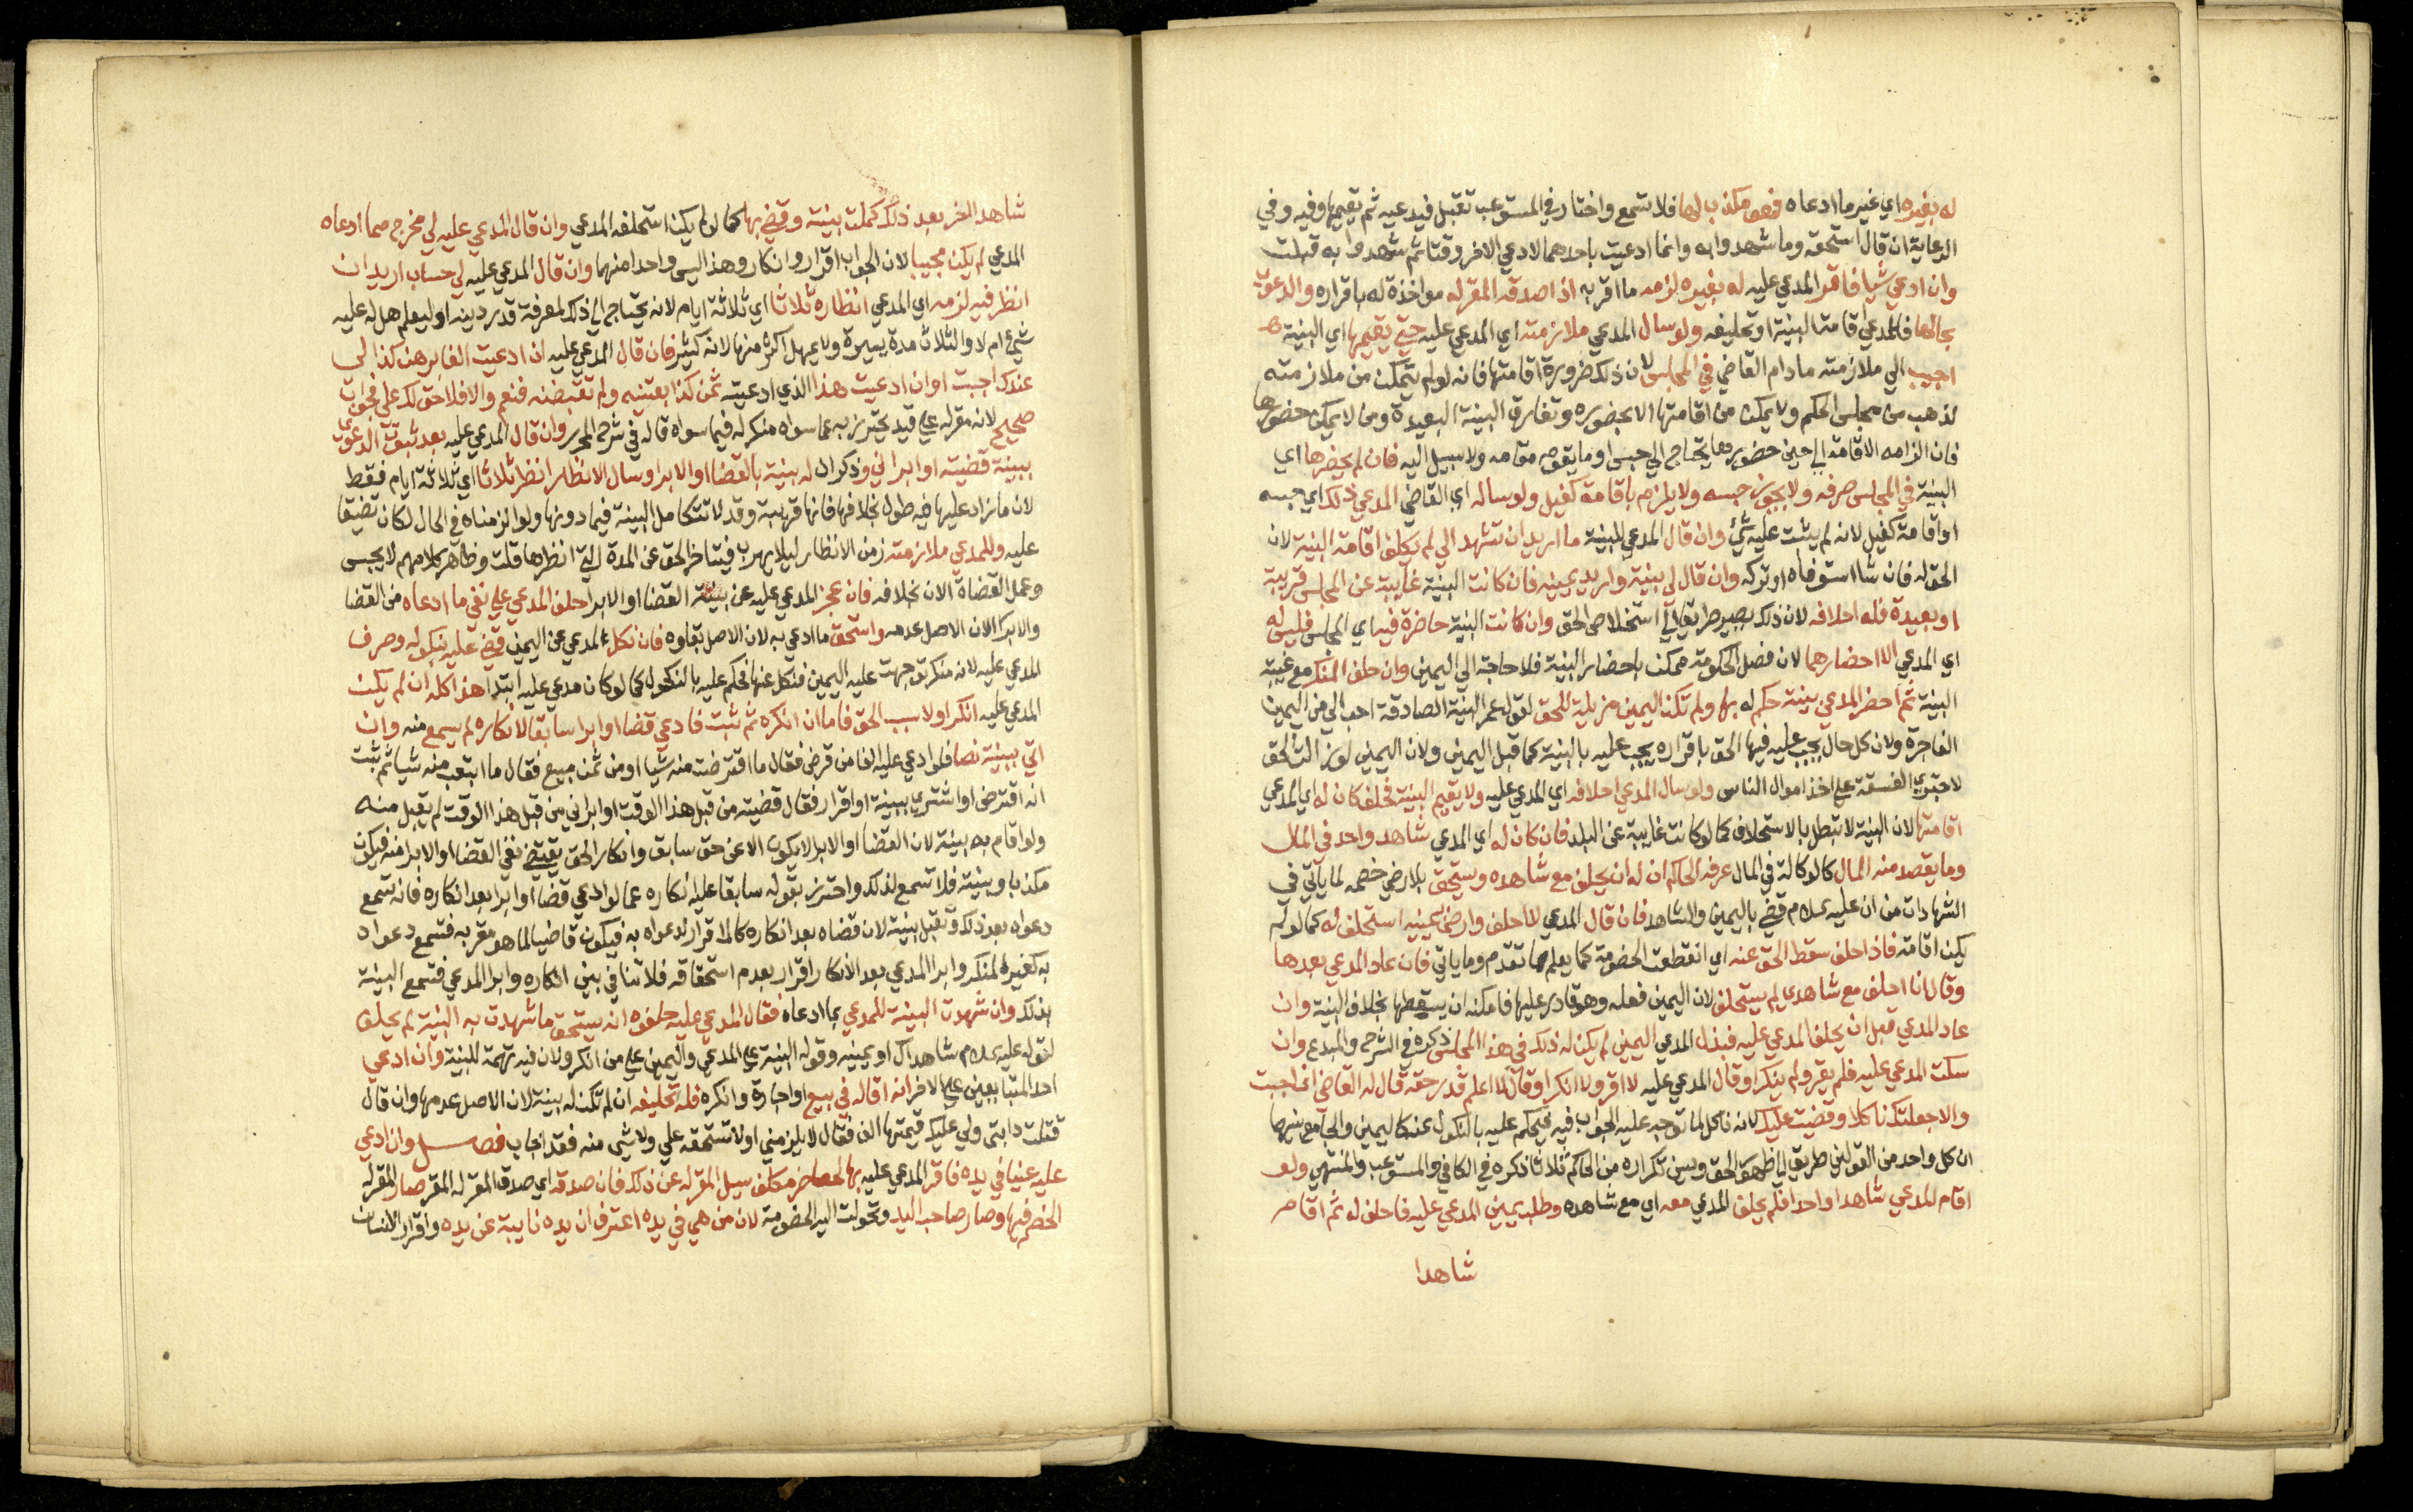 له بغيره اي غير ما ادعاه فهو مكذب لها فلا تسمع واختار في المستوعب تقبل فيدعيه ثم يقيمها وفيه وفي
الرعاية ان قال استحقه وما شهدوا به وانما ادعيت باحدهما لادعي الاخر وقتا ثم شهدوا به قبلت
وان ادعي شيا فاقر المدعي عليه له بغيره لزمه ما اقر به اذا صدقه المقر له مواخذة له باقراره والدعوي
بحالها فللمدعي اقامة البينة او تحليفه ولو سال المدعي ملازمته اي المدعي عليه حتي يقيمها اي البينة
اجيب الي ملازمته ما دام القاضي في المجلس لان ذلك ضرورة اقامتها فانه لو لم يتمكن من ملازمته
لذهب من مجلس الحكم ولا يمكن من اقامتها الا بحضوره وتفارق البينة البعيدة ومن لا يمكن حضورها
فان الزامه الاقامة الي حين حضورها يحتاج الي حبس او ما يقوم مقامه ولا سبيل اليه فان لم يحضرها اي
البينة في المجلس صرفه ولا يجوز حبسه ولا يلزم باقامة كفيل ولو ساله اي القاضي المدعي ذلك اي حبسه
او اقامة كفيل لانه لم يثبت عليه شي وان قال المدعي للبينة ما اريد ان تشهد الي لم يكلف اقامة البينة لان
الحق له فان شا استوفاه او تركه وان قال لي بينة واريد يمينه فان كانت البينة غايبة عن المجلس قريبة
او بعيدة فله احلافه لان ذلك يصير طريقا الي استخلاص الحق وان كانت البينة حاضرة فيه اي المجلس فليس له
اي المدعي الا احضارهما لان فصل الحكومة ممكن باحضار البينة فلا حاجة الي اليمين وان حلف المنكر مع غيبة
البينة ثم احضر المدعي بينة حكم له بها ولم تكن اليمين مزيلة للحق لقول عمر البينة الصادقة احب الي من اليمين
الفاجرة ولان كل حال يجب عليه فيها الحق باقراره يجب عليه بالبينة كما قبل اليمين ولان اليمين لو زالت الحق
لاجترى الفسقة علي اخذ اموال الناس ولو سال المدعي احلافه اي المدعي عليه ولا يقيم البينة فحلف كان له اي المدعي
اقامتها لان البينة لا تبطل بالاستحلاف كما لو كانت غايبة عن البلد فان كان له اي المدعي شاهد واحد في المال
وما يقصد منه المال كالوكالة في المال عرفه الحاكم ان له ان يحلف مع شاهده ويستحق بلا رضي خصمه لما ياتي في
الشهادات من ان عليه السلام قضي باليمين والشاهد فان قال المدعي لا احلف وارضي بيمينه استحلف له كما لو لم
يكن اقامه فاذا حلف سقط الحق عنه اي انقطعت الخصومة كما يعلم مما تقدم وما ياتي فان عاد المدعي بعدها
وقال انا احلف مع شاهدي لم يستحلف لان اليمين فعله وهو قادر عليها فامكنه ان يسقطها بخلاف البينة وان
عاد المدعي قبل ان يحلف المدعي عليه فبذل المدعي اليمين لم يكن له ذلك في هذا المجلس ذكره في الشرح والمبدع وان
سكت المدعي عليه فلم يقر ولم ينكر او قال المدعي عليه لا اقر ولا انكر او قال لا اعلم قدر حقه قال له القاضي ان اجبت
والا جعلتك ناكلا وقضيت عليك لانه ناكل لما توجه عليه الجواب فيه فيحكم عليه بالنكول عنه كاليمين والجامع بينهما
ان كل واحد من القولين طريق الي ظهور الحق ويسن تكراره من الحاكم ثلاثا ذكره في الكافي والمستوعب والمنتهي ولو
اقام المدعي شاهدا واحدا فلم يحلف المدعي معه اي مع شاهده وطلب يمين المدعي عليه فاحلف له ثم اقام
شاهدا
شاهدا اخر بعد ذلك كملت بينته وقضي بها كما لو لم يكن استحلفه المدعي وان قال المدعي عليه لي مخرج مما ادعاه
المدعي لم يكن مجيبا لان الجواب اقرار وانكار وهذا ليس واحدا منهما وان قال المدعي عليه لي حساب اريد ان
انظر فيه لزمه اي المدعي انظاره ثلاثا اي ثلاثة ايام لانه يحتاج الي ذلك لمعرفة قدر دينه او ليعلم هل له عليه
شي ام لا والثلاث مدة يسيرة ولا يمهل اكثر منها لانه كثير فان قال المدعي عليه ان ادعيت الفا برهن كذا لي
عندك اجبت او ان ادعيت هذا الذي ادعيته ثمن كذا بعتنيه ولم تقبضنيه فنعم والا فلا حق لك علي فجواب
صحيح لانه مقر له علي قيد يحترز به عما سواه منكر له فيما سواه قاله في شرح المحرر وان قال المدعي عليه بعد ثبوت الدعوي
ببينة قضيته او ابراني وذكر ان له بينة بالقضا او الابرا وسال الانظار انظر ثلاثا اي ثلاثة ايام فقط
لان ما زاد عليها فيه طول بخلافها فانها قريبة وقد لا تتكامل البينة فيما دونها ولو الزمناه في الحال لكان تضيقا
عليه وللمدعي ملازمته زمن الانظار ليلا يهرب فيتاخر الحق عن المدة التي انظرها قلت وظاهر كلامهم لا يحبس
وعمل القضاة الان بخلافه فان عجز المدعي عليه عن بينة القضا او الابرا حلف المدعي علي نفي ما ادعاه من القضا
والابرا لان الاصل عدمه واستحق ما ادعي به لان الاصل بقاوه فان نكل المدعي عن اليمين قضي عليه بنكوله وصرف
المدعي عليه لانه منكر توجهت عليه اليمين فنكل عنها فحكم عليه بالنكول كما لو كان مدعي عليه ابتدا هذا كله ان لم يكن
المدعي عليه انكر اولا سبب الحق فاما ان انكره ثم ثبت فادعي قضا او ابرا سابقا لانكاره لم يسمع منه وان
اتي ببينة نصا فلو ادعي عليه الفا من قرض فقال ما اقترضت منه شيا او من ثمن مبيع فقال ما ابتعت منه شيا ثم ثبت
انه اقترض او اشتري ببينة او اقرار فقال قضيته من قبل هذا الوقت او ابراني من قبل هذا الوقت لم يقبل منه
ولو اقام به بينة لان القضا او الابرا لا يكون الا عن حق سابق وانكار الحق يقتضي نفي القضا او الابرا منه فيكون
مكذبا وبينته فلا تسمع لذلك واحترز بقوله سابقا علي انكاره عما لو ادعي قضا او ابرا بعد انكاره فانه تسمع
دعواه بعد ذلك وتقبل بينته لان قضاه بعد انكاره كالاقرار لدعواه به فيكون قاضيا لما هو مقر به فتسمع دعواه
به كغير المنكر وابرا المدعي بعد الانكار اقرار بعدم استحقاقه فلا تنافي بين انكاره وابرا المدعي فتسمع البينة
بذلك وان شهدت البينة للمدعي بما ادعاه فقال المدعي عليه حلفوه انه يستحق ما شهدت به البينة لم يحلف
لقوله عليه السلام شاهداك او يمينه وقوله البينة علي المدعي واليمين علي من انكر ولان فيه تهمة للبينة وان ادعي
احد المتبايعين علي الاخر انه اقاله في بيع او اجارة وانكره فله تحليفه ان لم تكن له بينة لان الاصل عدمها وان قال
قتلت دابتي ولي عليك قيمتها الف فقال لا يلزمني او لا تستحقه علي ولا شي منه فقد اجاب فصل وان ادعي
عليه عينا في يده فاقر المدعي عليه بها لحاضر مكلف سيل المقر له عن ذلك فان صدقه اي صدق المقر له المقر صار المقر له
الخصم فيها وصار صاحب اليد وتحولت اليه الخصومة لان من هي في يده اعترف ان يده نايبة عن يده واقرار الانسان